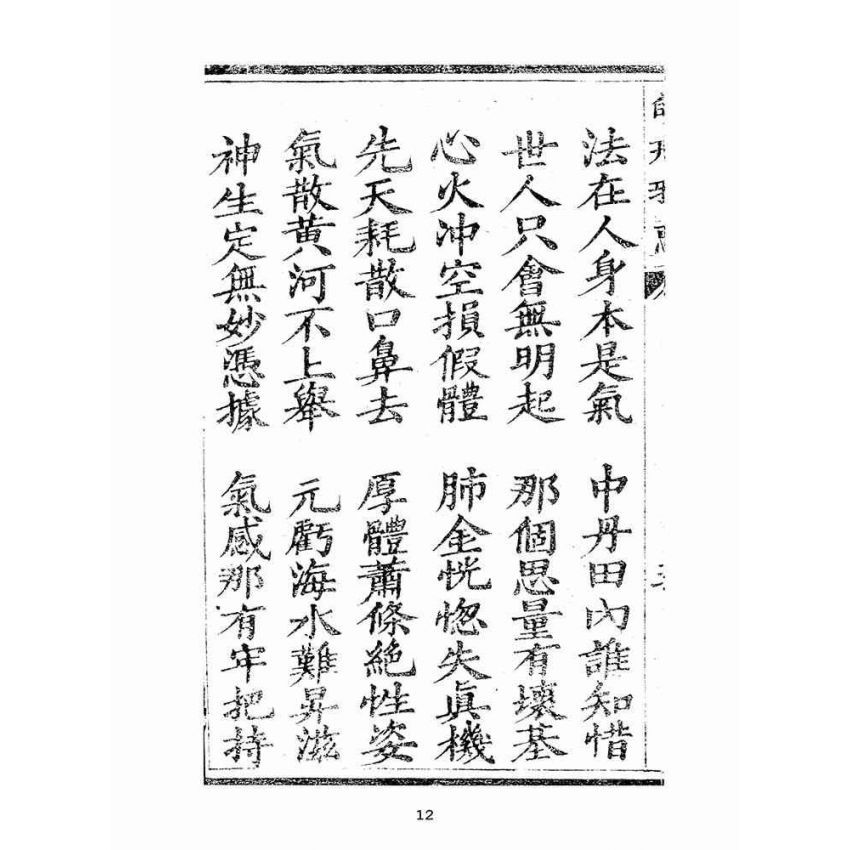 法在人身本是氣　中丹田內誰知惜
世人只會無明起　那個思量有壞基
心火冲空損假體　肺金恍惚失眞機
先天耗散口鼻去　厚體蕭條絕性姿
氣散黄河不上舉　元虧海水難昇滋
神生定無妙憑據　氣感那有牢把持
12